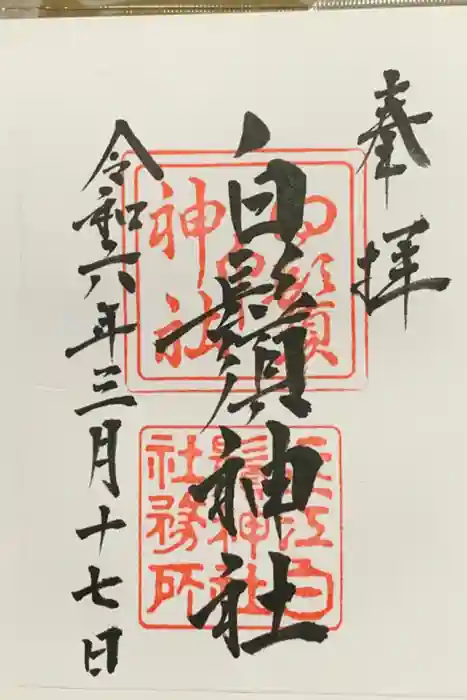 奉拝
白鬚神社
令和六年三月十七日
白鬚神社
近江白鬚神社社務所